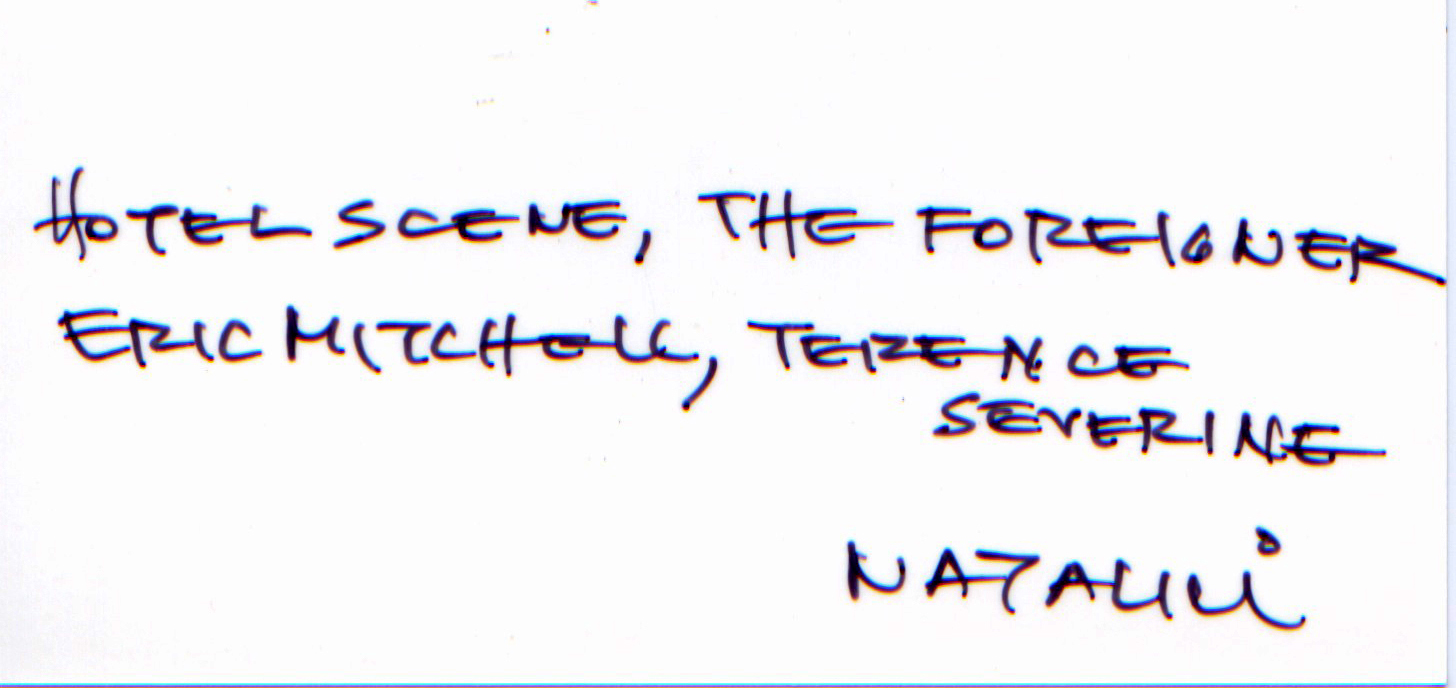 HOTEL SCENE, THE FOREIGNER
ERIC MITCHELL, TERENCE
SEVERINE
NATALICi